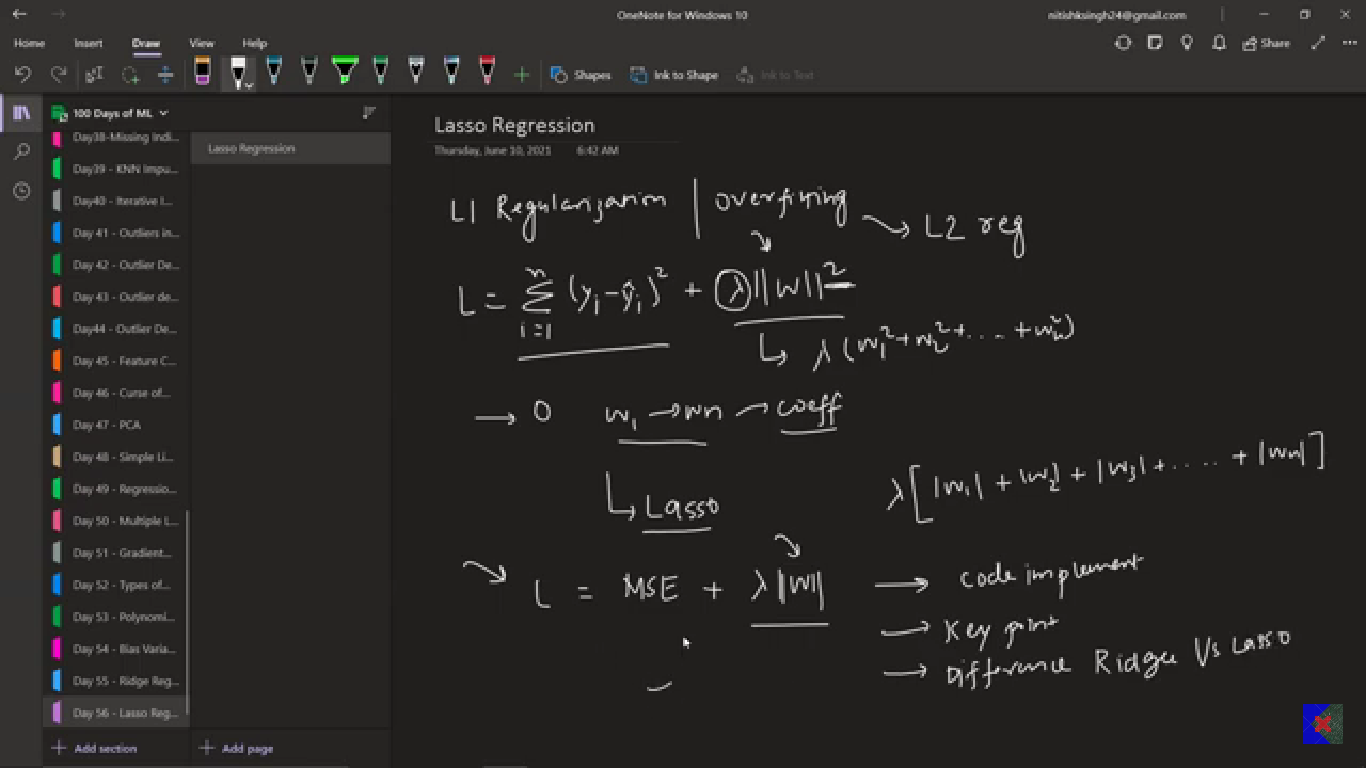 OneNote for Windows 10
nitishksingh24@gmail.com
Home Insert Draw View Help
Share
Shapes Ink to Shape Ink to Text
100 Days of ML
Day38-Missing Indi...
Day39 - KNN Impu...
Day40 - Iterative I...
Day 41 - Outliers in...
Day 42 - Outlier De...
Day 43 - Outlier de...
Day44 - Outlier De...
Day 45 - Feature C...
Day 46 - Curse of...
Day 47 - PCA
Day 48 - Simple Li...
Day 49 - Regressio...
Day 50 - Multiple L...
Day 51 - Gradient...
Day 52 - Types of...
Day 53 - Polynomi...
Day 54 - Bias Varia...
Day 55 - Ridge Reg...
Day 56 - Lasso Reg...
+ Add section
Lasso Regression
+ Add page
Lasso Regression
Thursday, June 10, 2021 6:42 AM
L1 Regularization | Overfitting → L2 reg
L = Σ_{i=1}^{n} (yᵢ-ŷᵢ)² + λ||W||²
↳ λ(w₁²+w₂²+....+wₙ²)
→ 0 w₁ → wn → coeff
↳ Lasso
λ[|w₁| + |w₂| + |w₃| + ..... + |wn|]
L = MSE + λ||W||
→ code implement
→ Key point
→ Difference Ridge Vs Lasso